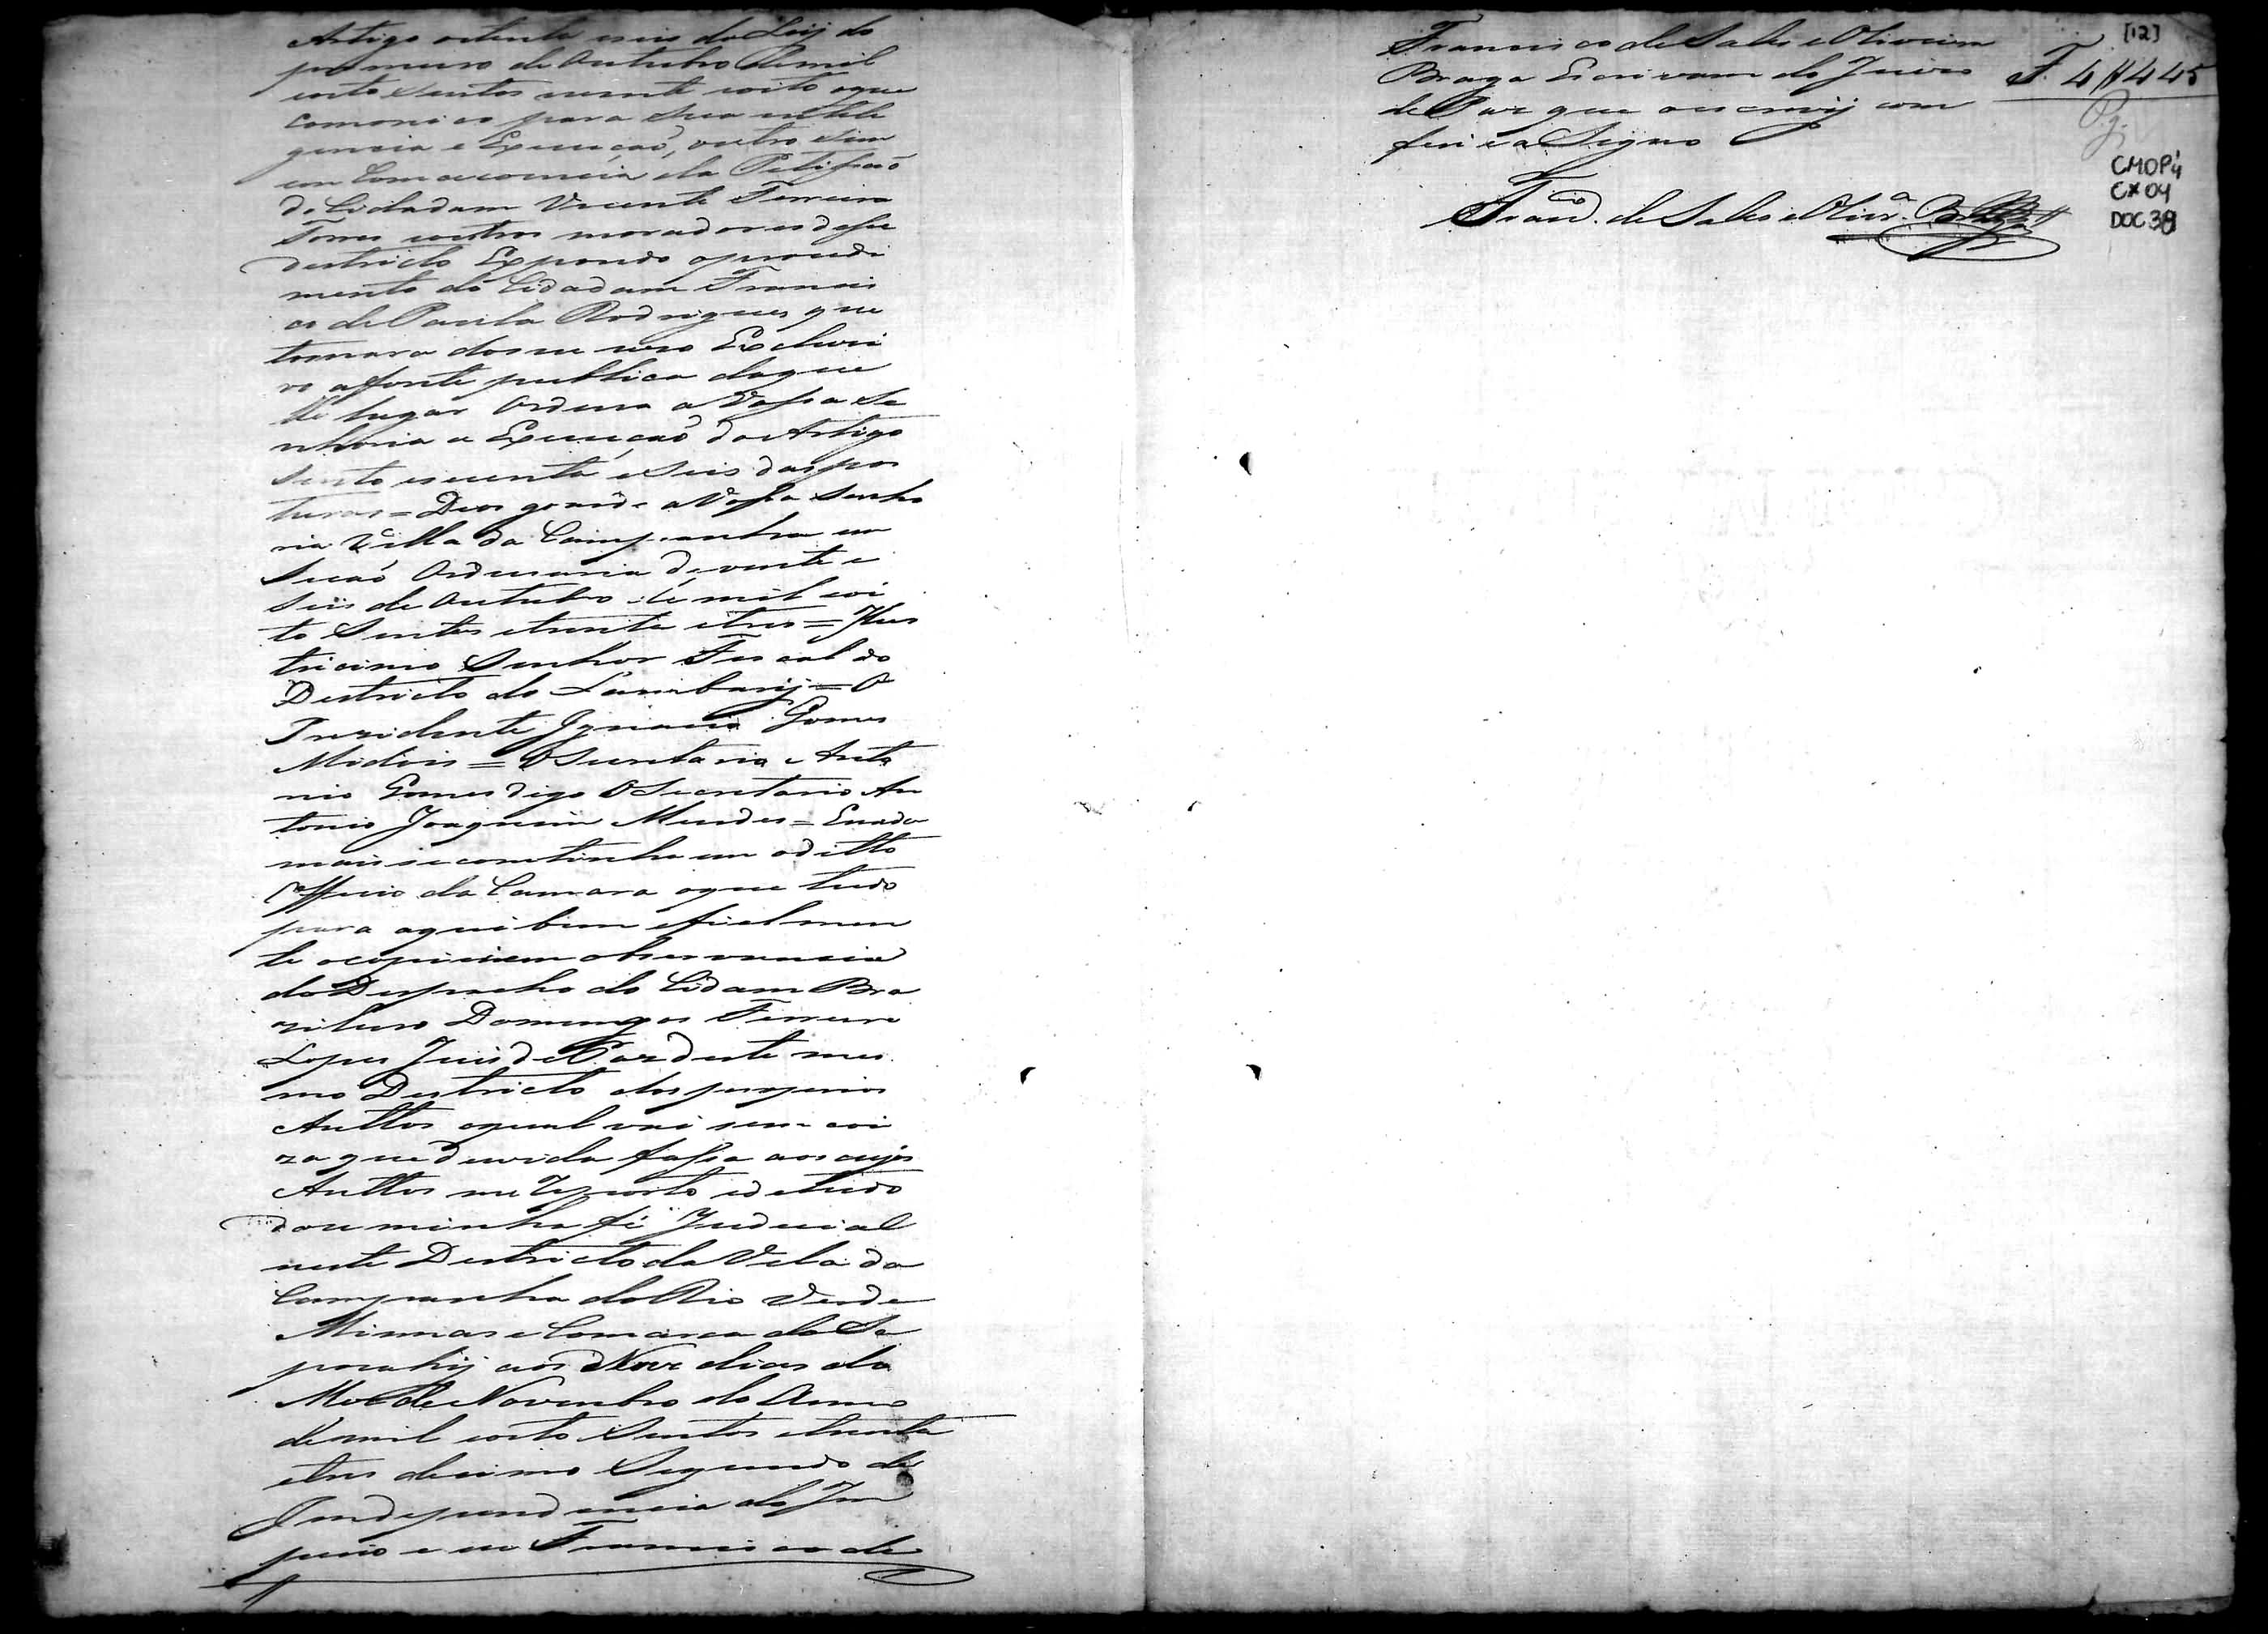 Artigo oitenta eseis da Leij do
primeiro de Outubro demil
eoito Sentos evinte eoito oque
comonico para Sua entele
gencia e Execuçaõ, outro Sim
em Comcecoencia da Petiçaõ
do Cidadam Vicente Ferreira
Torres eoutros moradores desse
destricto Expondo oprocedi
mento do Cidadam Francis
co de Paula Rodrigues que
tomara doseu uzo Excluzi
vo afonte publica daque
lle lugar Ordena a Vossa Se
nhoria a Execuçaõ do Artigo
Sento esecenta eSeis das pos
turas = Deos goarde a Vossa Senho
ria Villa da Campanha em
Seçaõ Ordenaria de vinte e
Seis de Outubro de mil eoi
to Sentos etrinta etres = Illus
tricimo Senhor Fiscal do
Destricto do Lambarij = O
Prezidente Ignacio Gomes
Midois = OSecretario Anto
nio Gomes digo OSecretario An
tonio Joaquim Mendes = Enada
mais secomtinha em o ditto
Officio da Camara oque tudo
para aqui bem efielmen
te ocopiei em observancia
do Despacho do Cidam Bra
zileiro Domingos Ferreira
Lopes Juis de Paz deste mes
mo Destricto dos proprios
Auttos oqual vai sem coi
za que duvida fassa aos cujos
Auttos me Reporto edetudo
dou minha fé Judicial
neste Destricto da Vila da
Campanha do Rio Verde
Minnas e Comarca do Sa
pucahij aos Nove dias do
Mes de Novembro do Anno
demil eoito Sentos etrinta
etres decimo Segundo da
Independencia do Im
perio e eu Francisco de
Francisco de Sales e Oliveira
Braga Escrivam do Juizo
de Paz que o escrevij com
feri e a Signo
Fran.co de Sales e Olivr.a Braga
[12]
F. 4//445
Pg.
CMOP4
CX 04
DOC 38